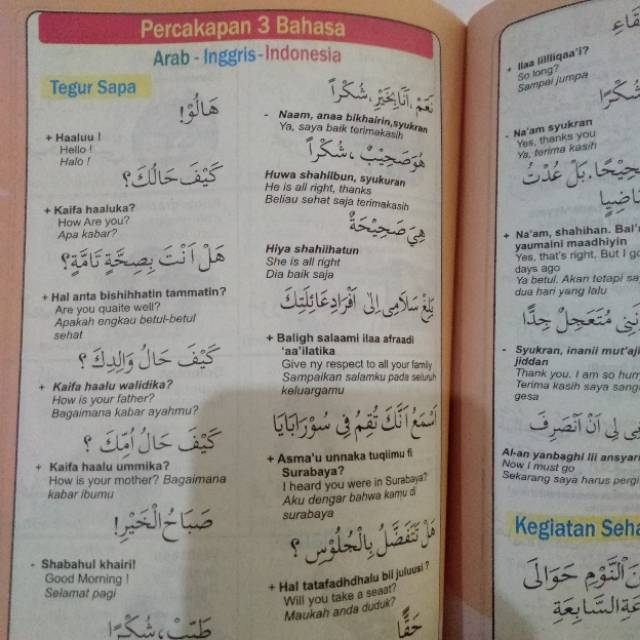 Percakapan 3 Bahasa
Arab - Inggris - Indonesia
Tegur Sapa
هَالُوْ!
+ Haaluu !
Hello !
Halo !
كَيْفَ حَالُكَ؟
+ Kaifa haaluka?
How Are you?
Apa kabar?
هَلْ اَنْتَ بِصِحَّةٍ تَامَّةٍ؟
+ Hal anta bishihhatin tammatin?
Are you quaite well?
Apakah engkau betul-betul
sehat
كَيْفَ حَالُ وَالِدِكَ ؟
+ Kaifa haalu walidika?
How is your father?
Bagaimana kabar ayahmu?
كَيْفَ حَالُ اُمِّكَ ؟
+ Kaifa haalu ummika?
How is your mother? Bagaimana
kabar ibumu
صَبَاحُ الْخَيْرِ!
- Shabahul khairi!
Good Morning !
Selamat pagi
طَيِّبْ، شُكْرًا
نَعَمْ، اَنَا بِخَيْرٍ، شُكْرًا
- Naam, anaa bikhairin,syukran
Ya, saya baik terimakasih
هُوَ صَحِيْبٌ، شُكْرًا
Huwa shahiibun, syukuran
He is all right, thanks
Beliau sehat saja terimakasih
هِيَ صَحِيْحَةٌ
Hiya shahiihatun
She is all right
Dia baik saja
بَلِّغْ سَلَامِى اِلَى اَفْرَادِ عَائِلَتِكَ
+ Baligh salaami ilaa afraadi
'aa'ilatika
Give ny respect to all your family
Sampaikan salamku pada seluruh
keluargamu
اَسْمَعُ اَنَّكَ تُقِمُ فِى سُوْرَابَايَا
+ Asma'u unnaka tuqiimu fi
Surabaya?
I heard you were in Surabaya?
Aku dengar bahwa kamu di
surabaya
هَلْ تَتَفَضَّلُ بِالْجُلُوْسِ ؟
+ Hal tatafadhdhalu bil juluusi ?
Will you take a seaat?
Maukah anda duduk?
حَقًّا
+ Ilaa lillliqaa'i?
So long?
Sampai jumpa
شُكْرًا
- Na'am syukran
Yes, thanks you
Ya, terima kasih
بَلْ عُدْتُ
+ Na'am, shahihan. Bal
yaumaini maadhiyin
Yes, that's right, But I
days ago
Ya betul. Akan tetapi
dua hari yang lalu
مُتَعَجِلٌ جِدًّا
- Syukran, inanii
jiddan
Thank you. I am so
Terima kasih saya
gesa
لِى اَنْ اَنْصَرِفَ
Al-an yanbaghi lii
Now I must go
Sekarang saya harus
Kegiatan
النَّوْمِ حَوَالَى
السَّابِعَةِ